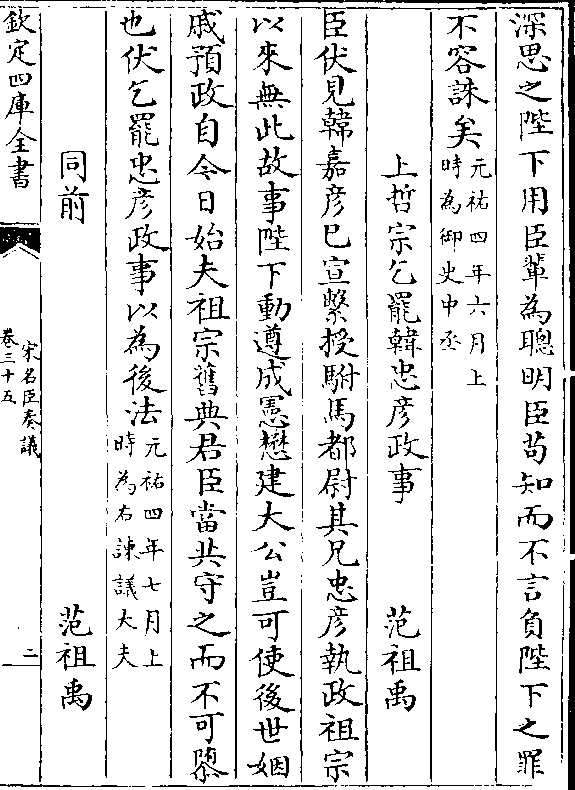 深思之陛下用臣輩為聰明臣苟知而不言負陛下之罪
不容誅矣元祐四年六月上
時為御史中丞
上哲宗乞罷韓忠彦政事 范祖禹
臣伏見韓嘉彦已宣繫授駙馬都尉其兄忠彦執政祖宗
以來無此故事陛下動遵成憲懋建大公豈可使後世姻
戚預政自今日始夫祖宗舊典君臣當共守之而不可隳
也伏乞罷忠彦政事以為後法元祐四年七月上
時為右諫議大夫
同前 范祖禹
欽定四庫全書
宋名臣奏議
卷三十五
二